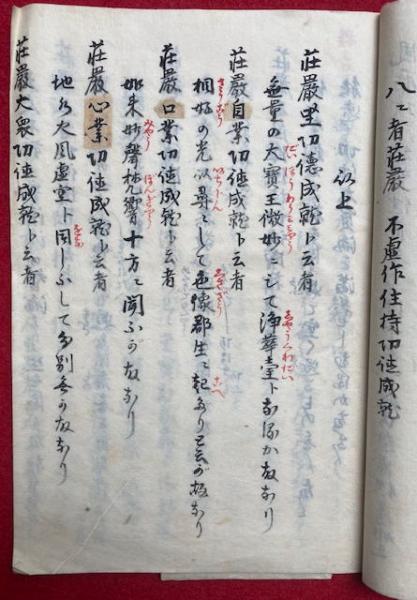 八ニ者荘嚴 不虚作住持功徳成就
以上
荘嚴坐功徳成就ト云者
無量の大寶王微妙ニして浄華臺トなるか故なり
荘嚴身業功徳成就ト云者
相好の光一尋ニして色像郡生ニ起あり
荘嚴口業功徳成就ト云者
如来妙聲梵響十方ニ聞ふか故なり
荘嚴心業功徳成就ト云者
地水火風虚空ト同しふして分別無か故なり
荘嚴大衆功徳成就ト云者